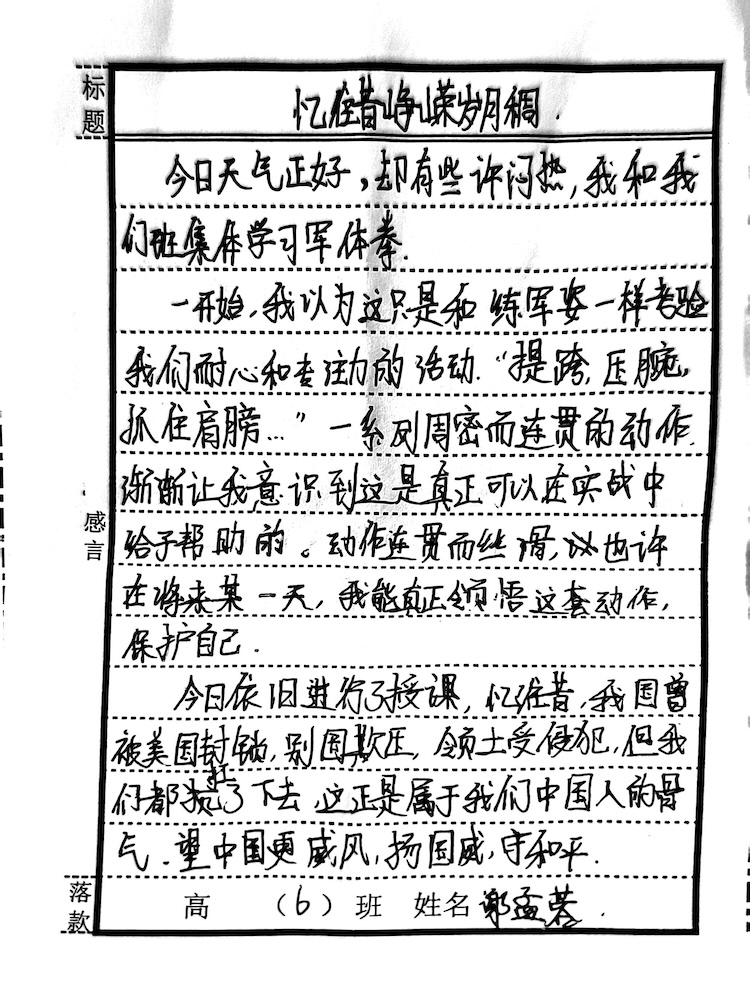 标题
忆往昔峥嵘岁月稠.
今日天气正好，却有些许闷热，我和我
们班集体学习军体拳.
一开始，我以为这只是和练军姿一样考验
我们耐心和专注力的活动.“提跨，压腕，
抓住肩膀...”一系列周密而连贯的动作.
渐渐让我意识到这是真正可以在实战中
给予帮助的。动作连贯而丝滑，也许
在将来某一天，我能真正领悟这套动作，
保护自己.
感言
今日依旧进行了授课，忆往昔，我国曾
被美国封锁，别国欺压，领土受侵犯，但我
们都扛了下去，这正是属于我们中国人的骨
气.望中国更威风，扬国威，守和平.
落款
高 （6）班 姓名 郭孟蓉.